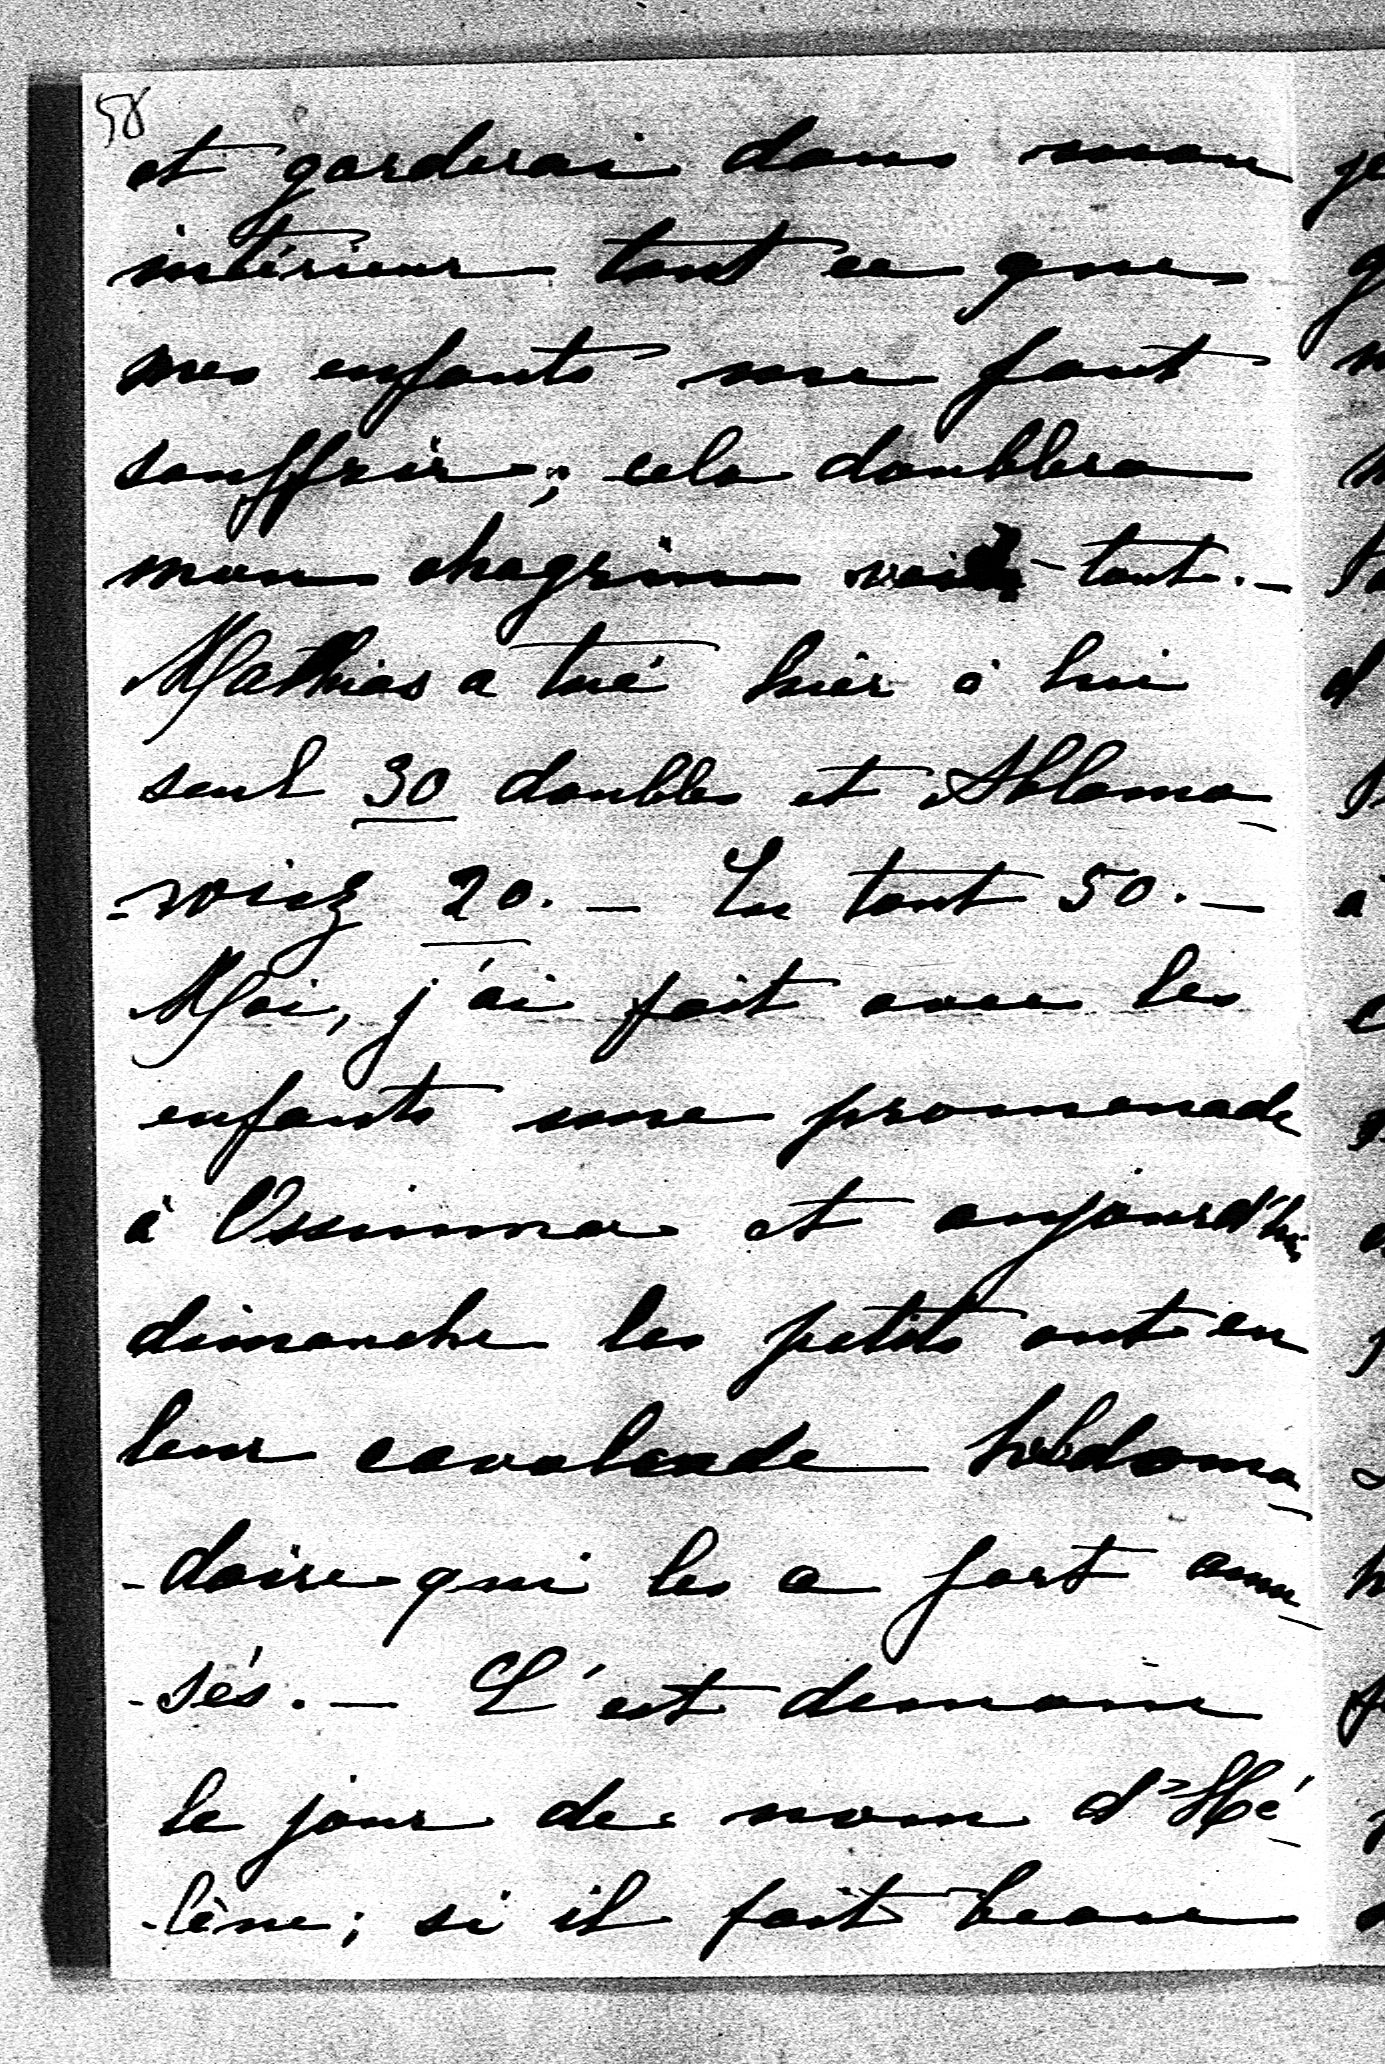 58
et garderai dans mon
intérieur tout ce que
mes enfants me font
souffrir; cela doublera
mon chagrin voilà tout. —
Mathias a tué hier à lui
seul 30 doubles et Ablamo
-wicz 20. — En tout 50. —
Moi, j'ai fait avec les
enfants une promenade
à Ossinna et aujourd'hui
dimanche les petits ont eu
leur cavalcade hebdoma
-daire qui les a fort amu
-sés. — C'est demain
le jour de nom d'Hé
-lène; si il fait beau